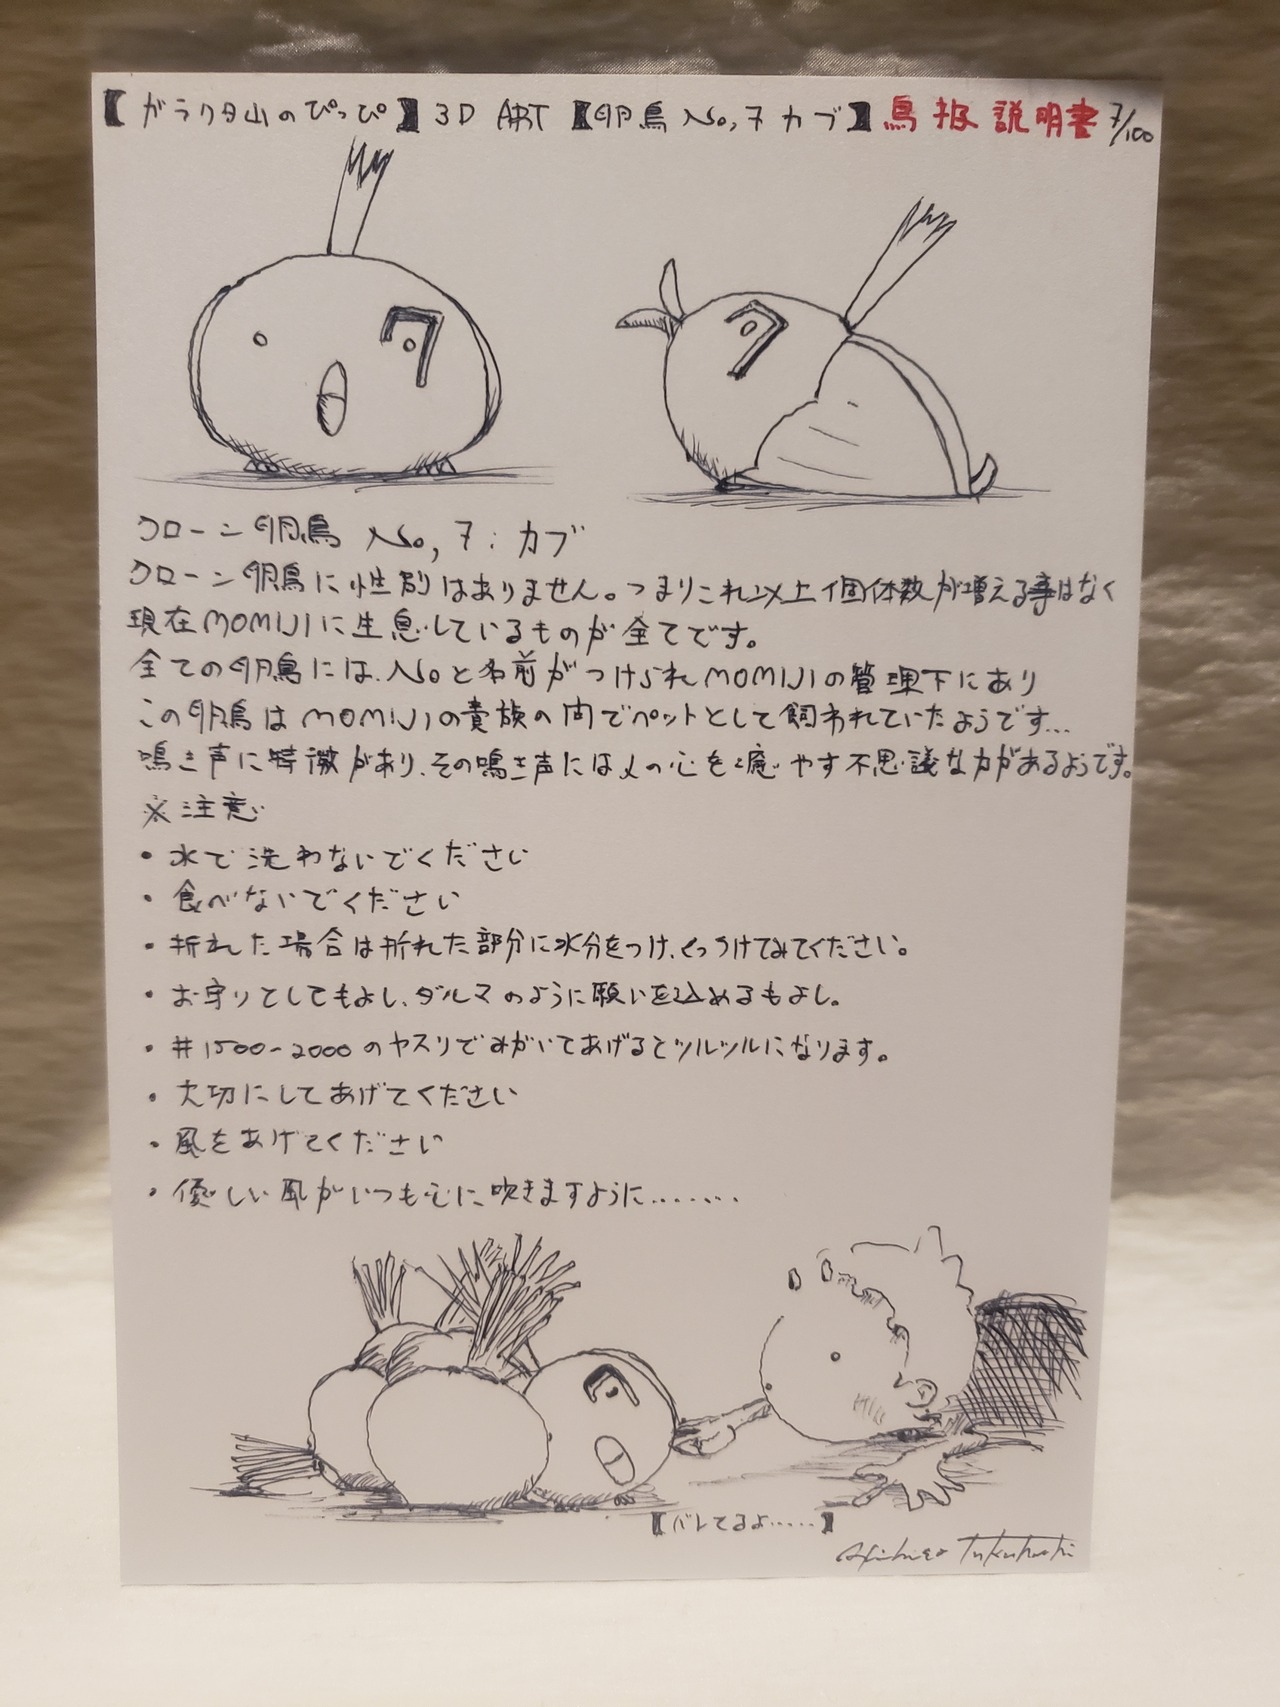 【ガラクタ山のぴっぴ】3D ART【卵鳥 No,7 カブ】鳥扱説明書 7/100
ワ
ワ
クローン卵鳥 No,7:カブ
クローン卵鳥に性別はありません。つまりこれ以上個体数が増える事はなく
現在MOMIJIに生息しているものが全てです。
全ての卵鳥には、Noと名前がつけられMOMIJIの管理下にあり
この卵鳥はMOMIJIの貴族の間でペットとして飼われていたようです…
鳴き声に特徴があり、その鳴き声には人の心を癒やす不思議な力があるようです。
※注意
・水で洗わないでください
・食べないでください
・折れた場合は折れた部分に水分をつけ、くっつけてみてください。
・お守りとしてもよし、ダルマのように願いを込めるもよし。
・#1500-2000のヤスリでみがいてあげるとツルツルになります。
・大切にしてあげてください
・風をあげてください
・優しい風がいつも心に吹きますように.......
ワ
【バレてるよ.....】